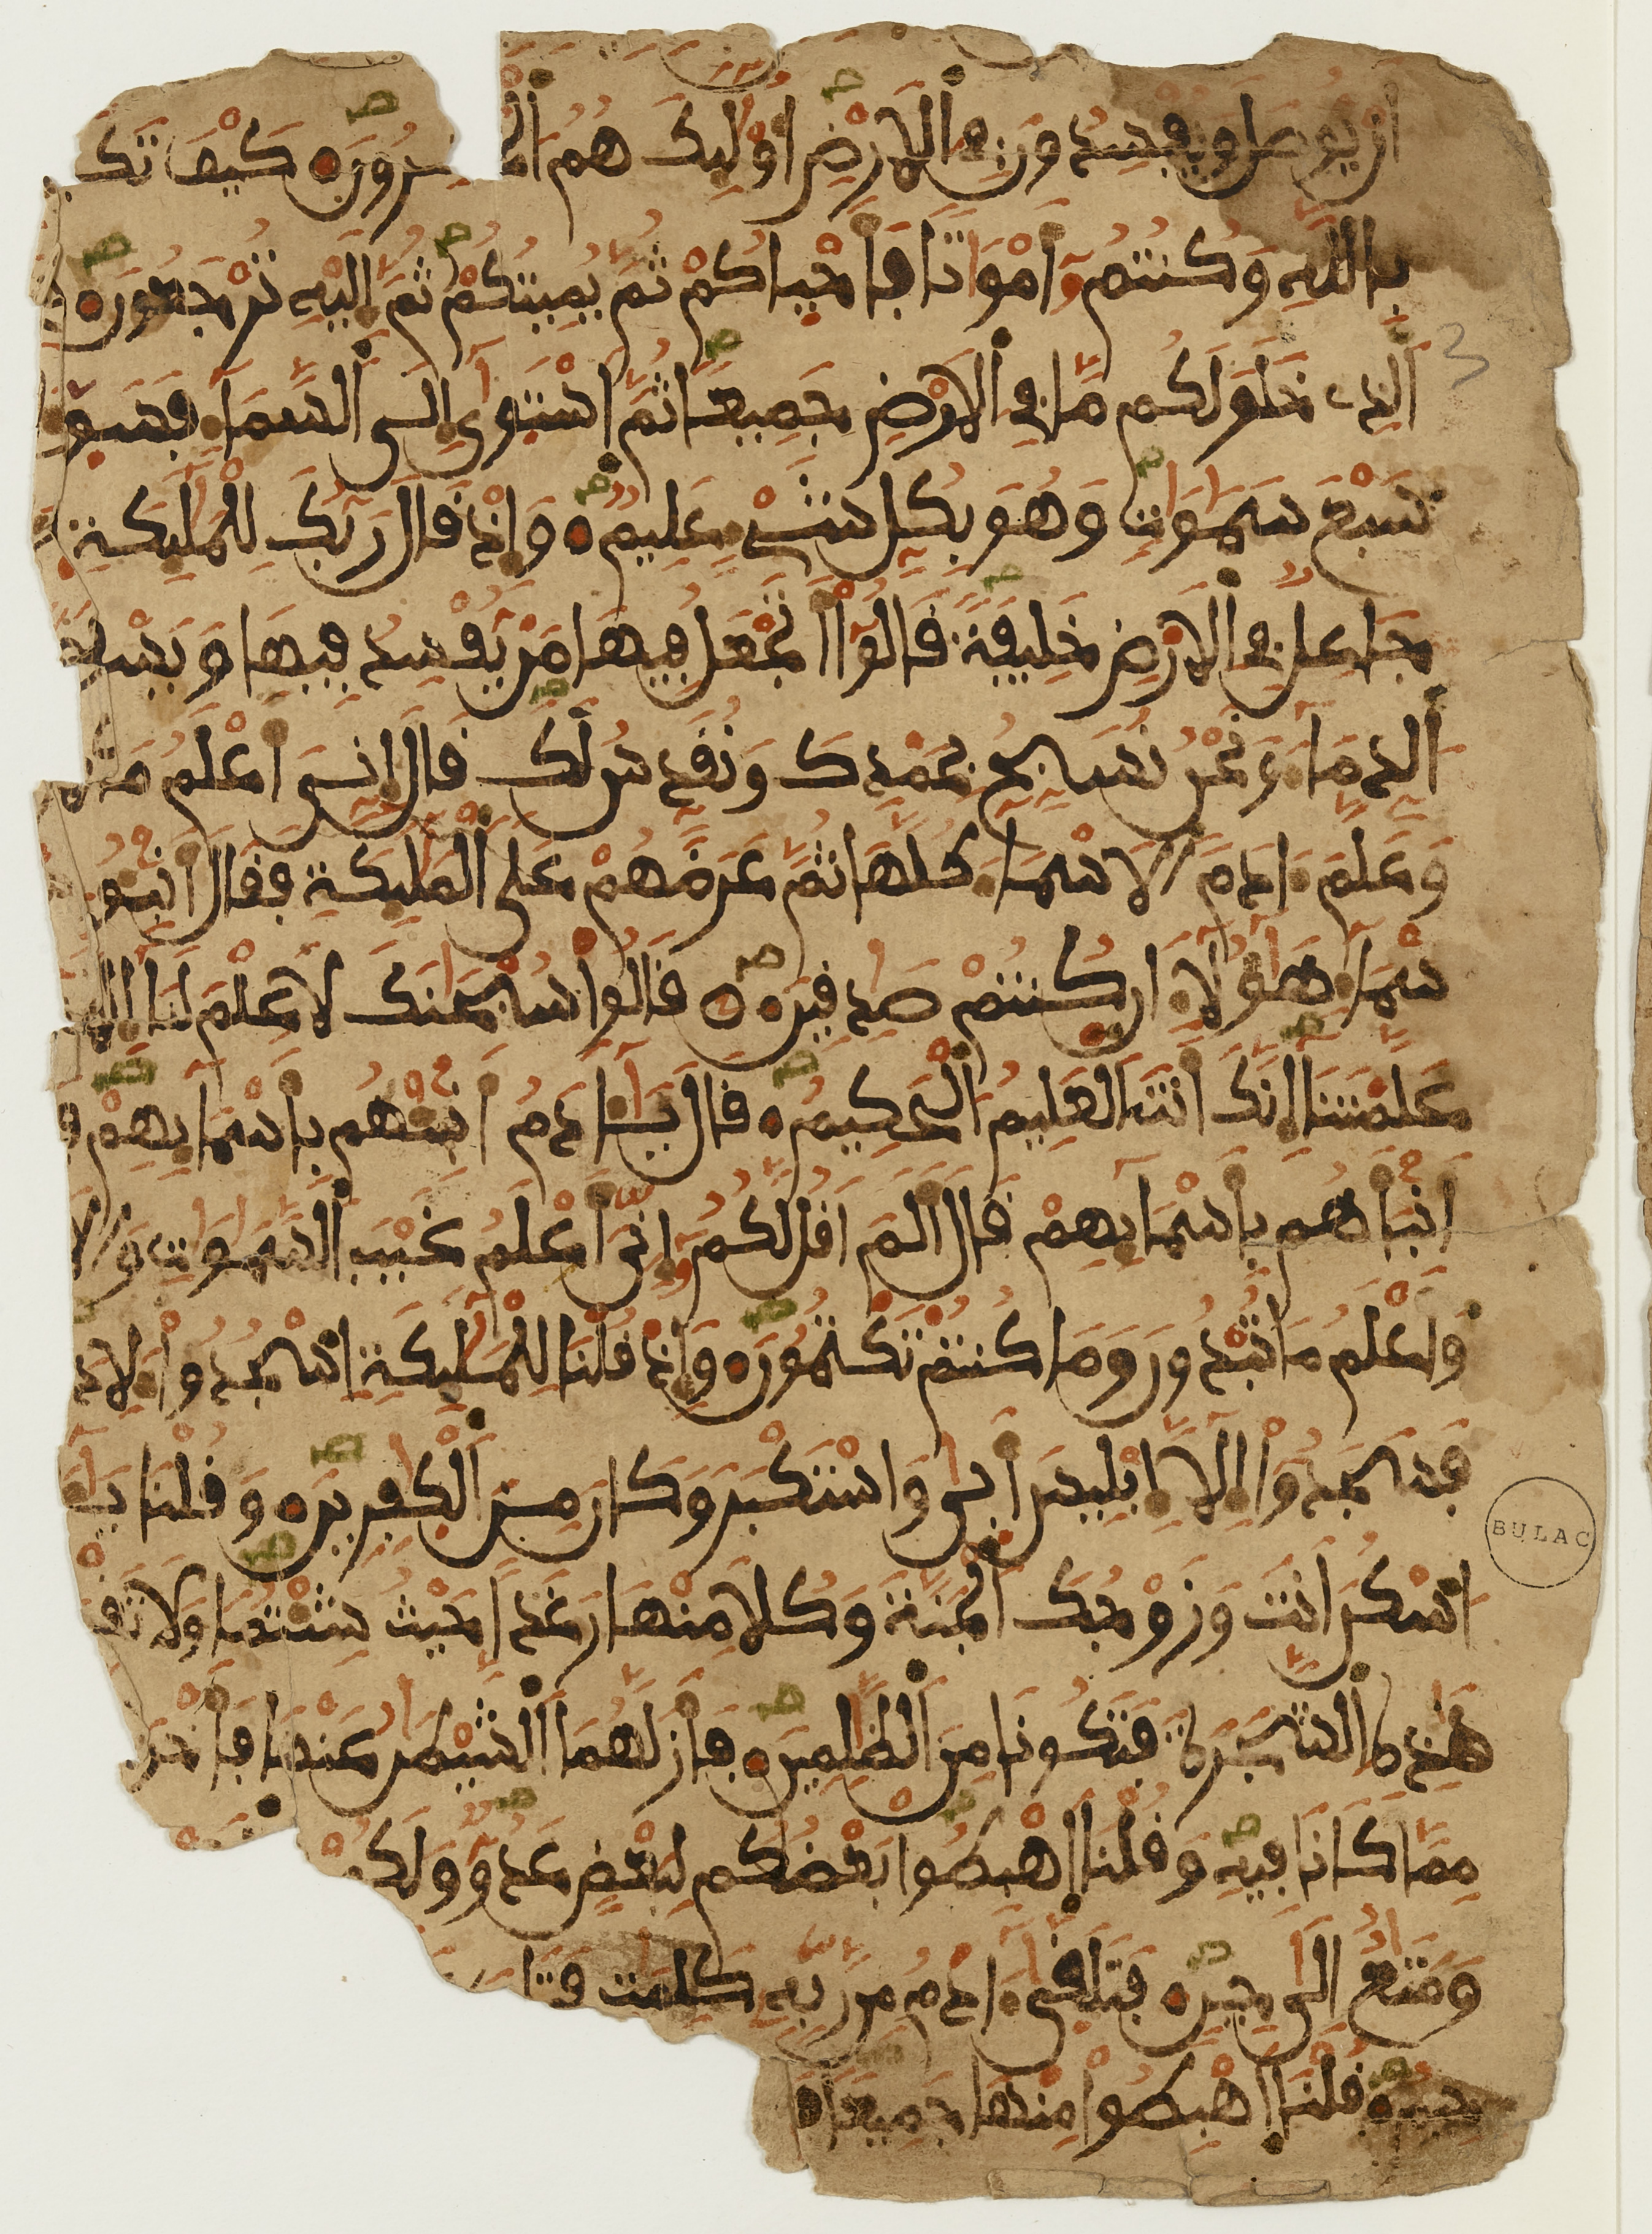 ان يوصل ويفسدون في الارض اوليك هم الخسرون كيف تك
بالله وكنتم اموتا فاحياكم ثم يميتكم ثم اليه ترجعون
الذي خلق لكم ما في الارض جميعا ثم استوى الى السما فسو
سبع سموت وهو بكل شي عليم واذ قال ربك للمليكة
جاعل في الارض خليفة قالوا اتجعل فيها من يفسد فيها ويسف
الدما ونحن نسبح بحمدك ونقدس لك قال اني اعلم ما
وعلم ادم الاسما كلها ثم عرضهم على المليكة فقال انبو
سما هولا ان كنتم صدقين قالوا سبحنك لا علم لنا الا
علمتنا انك انت العليم الحكيم قال يادم انبيهم باسمايهم
انباهم باسمايهم قال الم اقل لكم اني اعلم غيب السموت والا
واعلم ما تبدون وما كنتم تكتمون واذ قلنا للمليكة اسجدوا لاد
فسجدوا الا ابليس ابى واستكبر وكان من الكفرين وقلنا يـ
اسكن انت وزوجك الجنة وكلا منها رغدا حيث شيتما ولا تقـ
هذه الشجرة فتكونا من الظلمين فازلهما الشيطن عنها فاخر
مما كانا فيه وقلنا اهبطوا بعضكم لبعض عدو ولكم
ومتع الى حين فتلقى ادم من ربه كلمت فتا
قلنا اهبطوا منها جميعا
3
BULAC